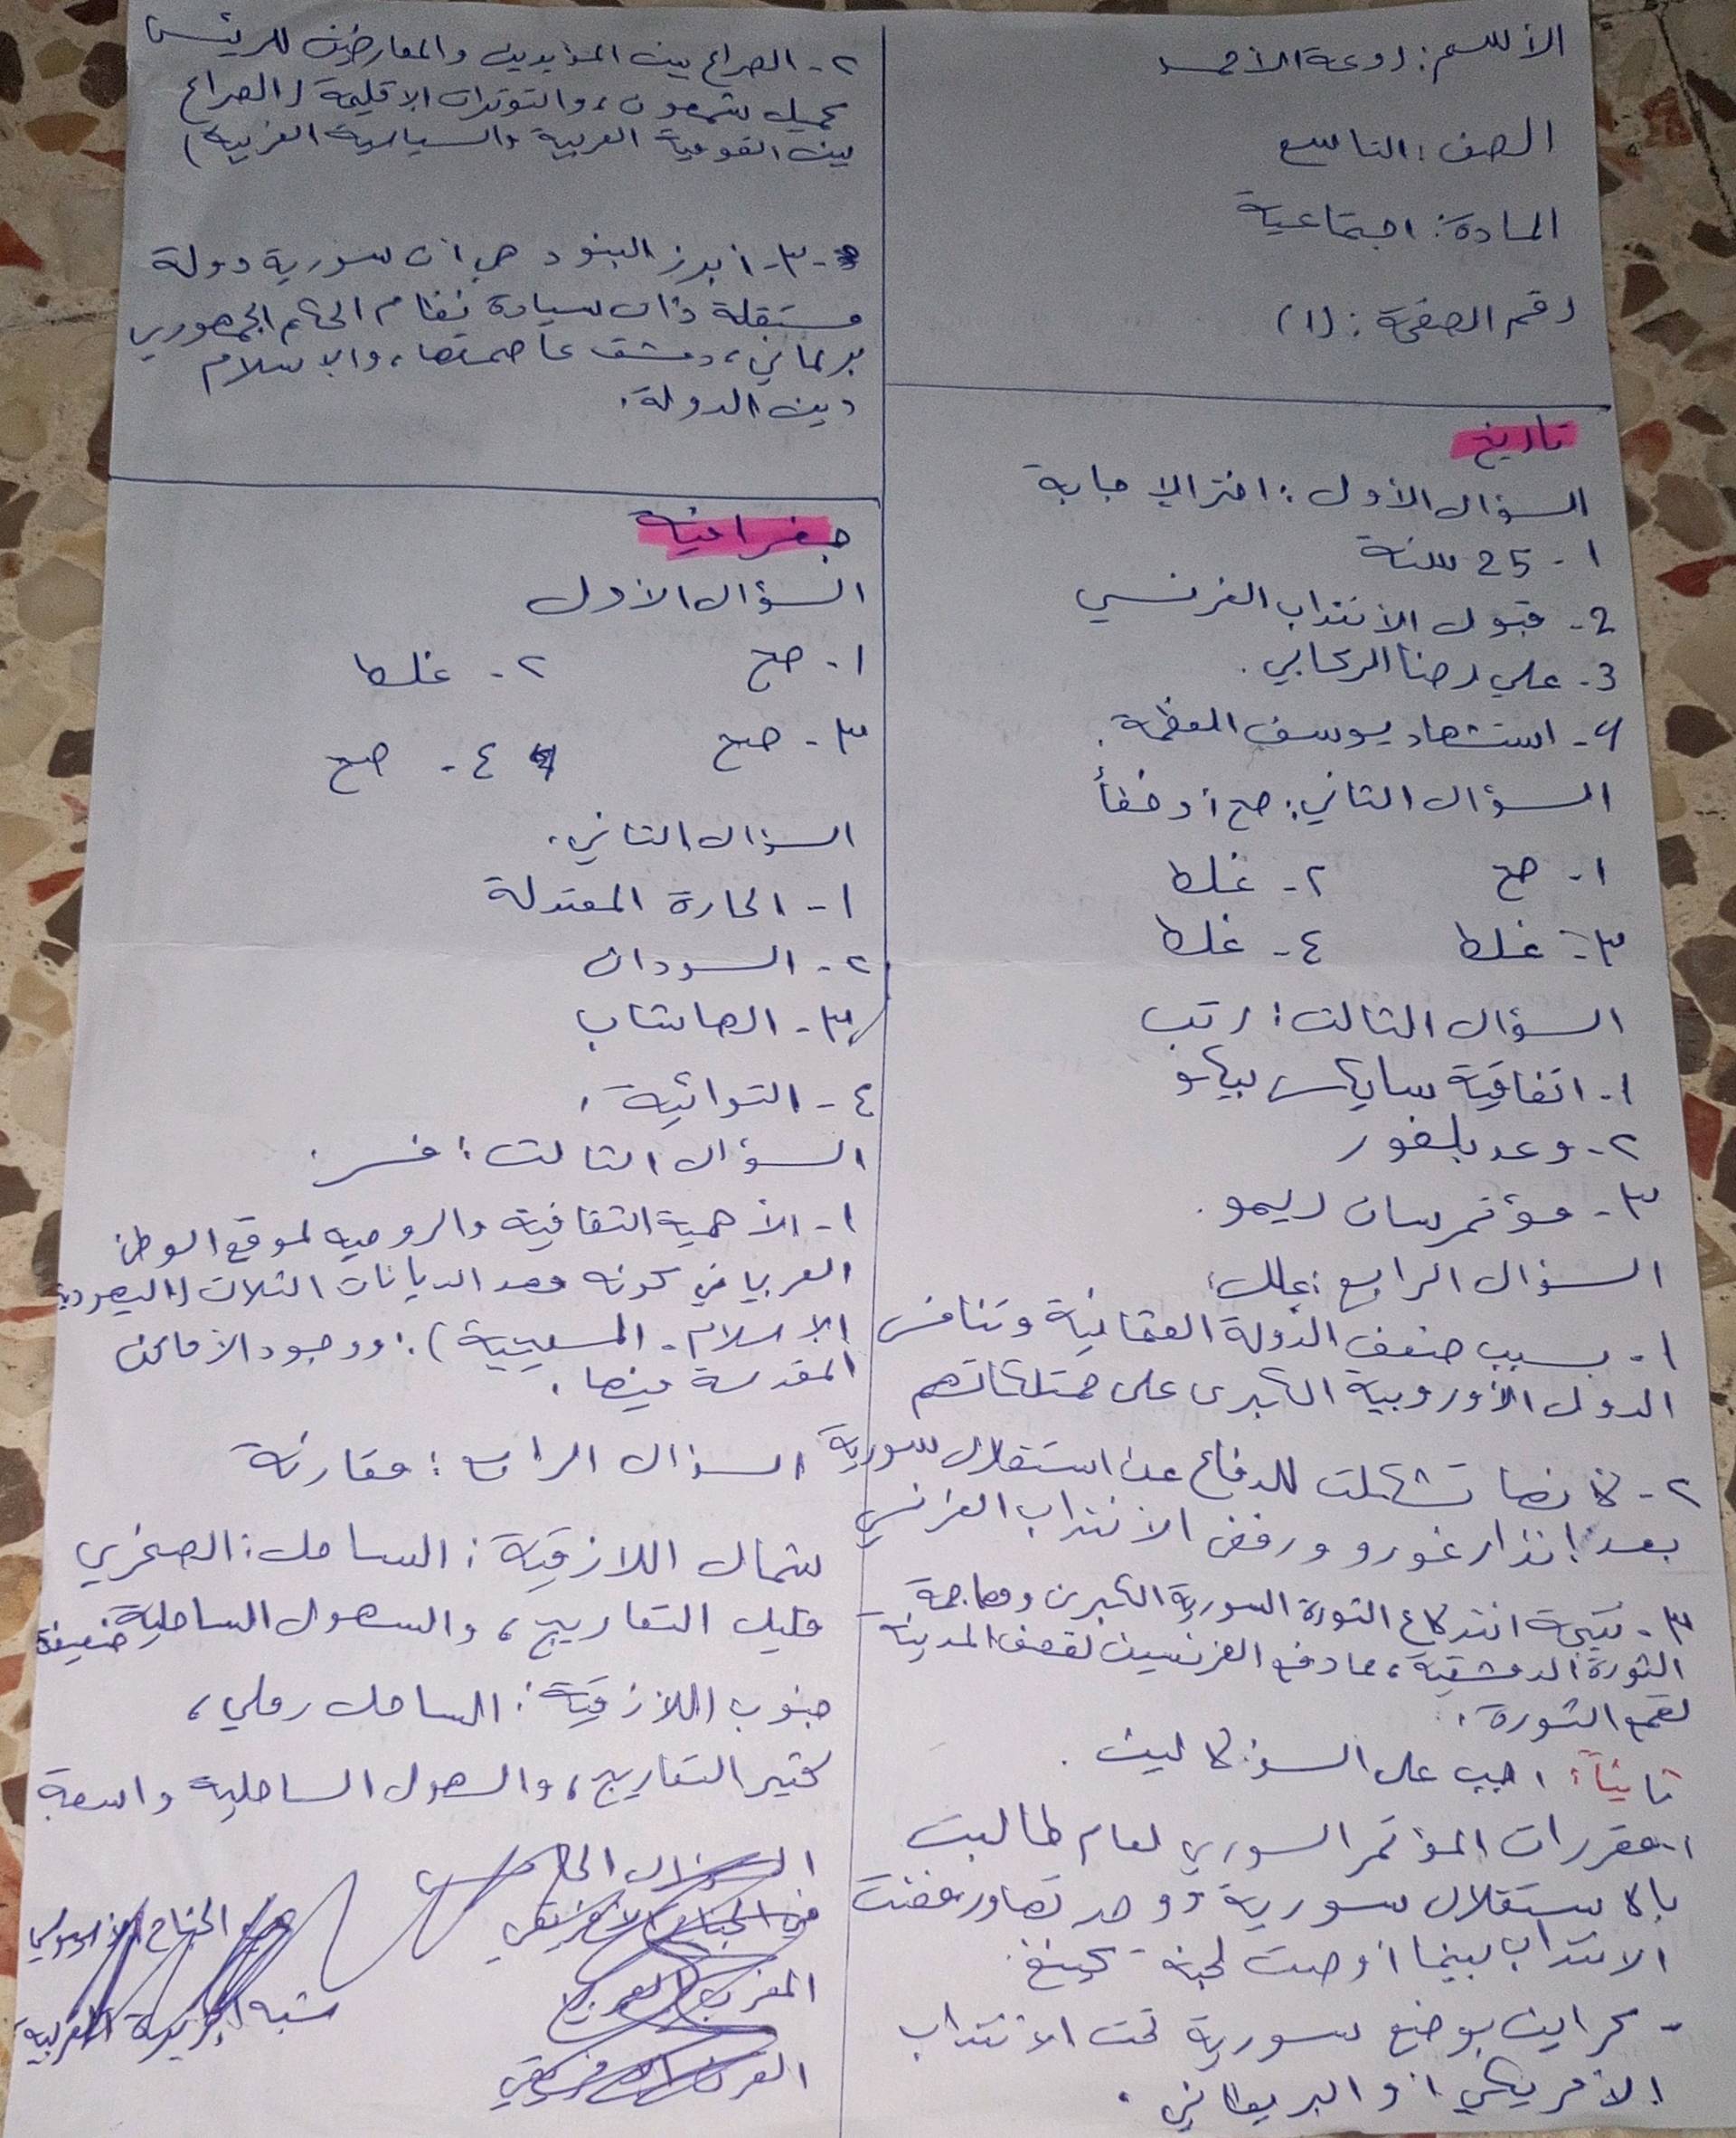 الأسم: روعة الأحمد
الصف: التاسع
المادة: اجتماعية
رقم الصفحة: (١)
تاريخ
السؤال الأول: اختر الإجابة
١- 25 سنة
2- قبول الأنتداب الفرنسي
3- علي رضا الركابي.
4- استشهاد يوسف العظمة.
السؤال الثاني: صح أو خطأ
١- صح ٢- غلط
٣- غلط ٤- غلط
السؤال الثالث: رتب
١- اتفاقية سايكس بيكو
٢- وعد بلفور
٣- مؤتمر سان ريمو.
السؤال الرابع: علل:
١- بسبب ضعف الدولة العثمانية وتنافس
الدول الأوروبية الكبرى على ممتلكاتهم
٢- لانها تشكلت للدفاع عن استقلال سورية
بعد إنذار غورو ورفض الأنتداب الفرنسي
٣- نتيجة اندلاع الثورة السورية الكبرى ومهاجمة
الثورة الدمشقية، مادفع الفرنسيين لقصف المدينة
لقمع الثورة.
ثانياً: اجب على السؤالين.
١- مقررات المؤتمر السوري لعام طالبت
بالاستقلال سورية ووحدتها ورفضت
الانتداب بينما أوصت لجنة كينغ
- كراين بوضع سورية تحت الأنتداب
الأمريكي أو البريطاني.
٢- الصراع بين المؤيدين والمعارضين للرئيس
كميل شمعون، والتوترات الإقليمة (الصراع
بين القومية العربية والسياسة الغربية)
٣- أبرز البنود هي أن سورية دولة
مستقلة ذات سيادة نظام الحكم الجمهوري
برلماني، دمشق عاصمتها، والإسلام
دين الدولة.
جغرافية
السؤال الأول
١- صح ٢- غلط
٣- صح ٤- صح
السؤال الثاني.
١- الحارة المعتدلة
٢- السودان
٣- الهاشاب
٤- التوائية.
السؤال الثالث: فسر.
١- الأهمية الثقافية والروحيه لموقع الوطن
العربي في كونه مهد الديانات الثلاث (اليهودية
الإسلام - المسيحية): ووجود الأماكن
المقدسة فيها.
السؤال الرابع: مقارنة
شمال اللازقية: الساحل: الصخري
قليل التعاريج، والسهول الساحلية ضيقة
جنوب اللازقية: الساحل رملي،
كثير التعاريج، والسهول الساحلية واسعة
السؤال الخامس
المغرب العربي
شبه الجزيرة العربية
القرن الافريقي